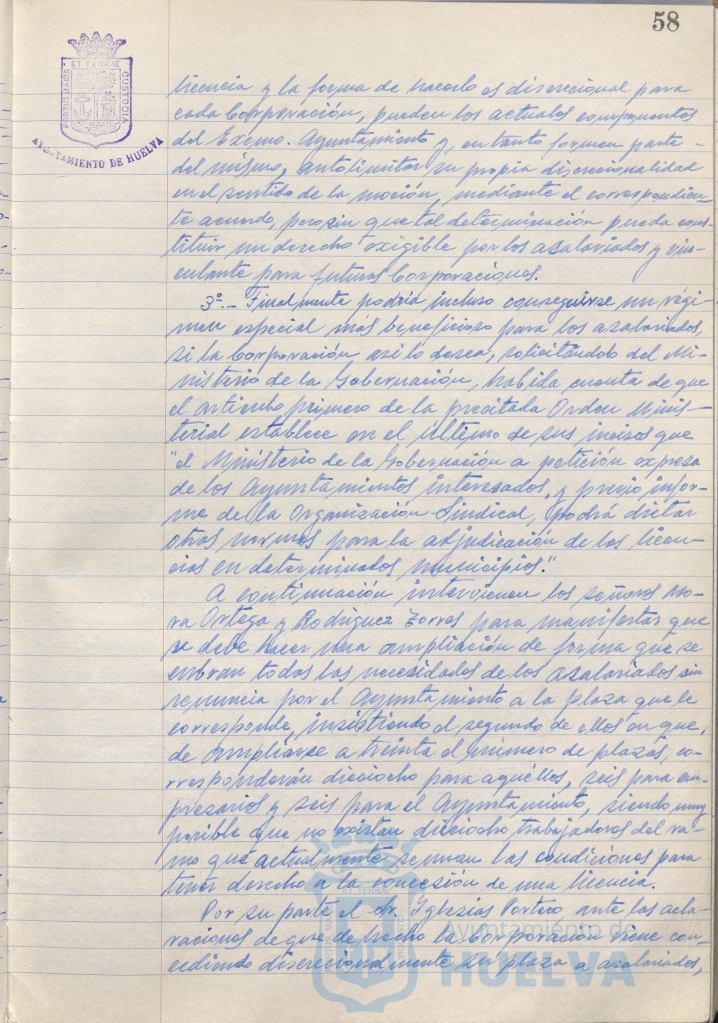 58
PORTUS MARIS ET TERRAE CUSTODIA
AYUNTAMIENTO DE HUELVA
licencia y la forma de hacerlo es discrecional para
cada Corporación, pueden los actuales componentes
del Excmo. Ayuntamiento y, en tanto formen parte
del mismo, autolimitar su propia discrecionalidad
en el sentido de la moción, mediante el correspondien-
te acuerdo, pero sin que tal determinación pueda cons-
tituir un derecho exigible por los asalariados y vin-
culante para futuras Corporaciones.
3º.- Finalmente podría incluso conseguirse un régi-
men especial más beneficioso para los asalariados,
si la Corporación así lo desea, solicitándolo del Mi-
nisterio de la Gobernación, habida cuenta de que
el artículo primero de la precitada Orden Minis-
terial establece en el último de sus incisos que
"el Ministerio de la Gobernación a petición expresa
de los Ayuntamientos interesados, y previo infor-
me de la Organización Sindical, podrá dictar
otras normas para la adjudicación de las licen-
cias en determinados municipios."
A continuación intervienen los señores Mo-
ra Ortega y Rodríguez Torres para manifestar que
se debe hacer una ampliación de forma que se
cubran todas las necesidades de los asalariados sin
renuncia por el Ayuntamiento a la plaza que le
corresponde, insistiendo el segundo de ellos en que,
de ampliarse a treinta el número de plazas, co-
rresponderán dieciocho para aquéllos, seis para em-
presarios y seis para el Ayuntamiento, siendo muy
posible que no existan dieciocho trabajadores del ra-
mo que actualmente reunan las condiciones para
tener derecho a la concesión de una licencia.
Por su parte el Sr. Iglesias Portero, ante las acla-
raciones de que de hecho la Corporación viene con-
cediendo discrecionalmente su plaza a asalariados,
Ayuntamiento de
HUELVA